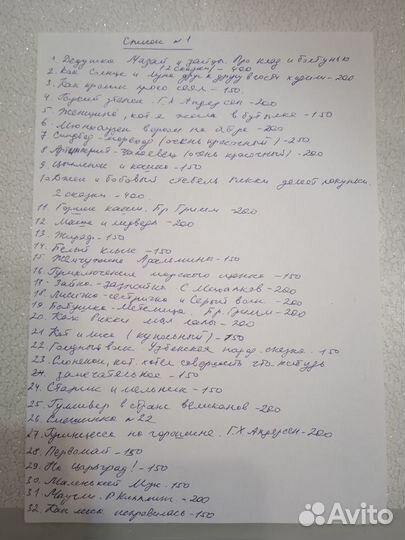 Список №1
1. Дедушка Мазай и зайцы. Про клад и болтунью
(2 сказки) - 400
2. Как солнце и луна друг к другу в гости ходили - 200
3. Как кролик просо сеял - 150.
4. Гадкий утенок. Г.Х Андерсен - 200
5. Женщина, кот. жила в бутылке - 150
6. Мюнхаузен верхом на ядре - 200
7. Синдбад - мореход (очень красочный) - 250
8. завоевец (очень красочный) - 200
9. Цыпленок и - 150
10 Джек и бобовый стебель делает покупки.
2 сказки - 400.
11. Горшок каши. Бр. Гримм - 200
12. Маша и медведь - 200
13. - 150
14. Белый клык - 150
15. Жемчужина Адальмины - 150
16. Приключения морского - 150
17. Зайка - зазнайка С Михалков - 200
18. Лисичка - сестричка и Серый волк - 200
19. Бабушка - Метелица. Бр. Гримм - 200
20. Как Рикки мыл лапы - 200
21. Кот и лиса (кукольный) - 150
22. Голодный волк народ. сказка - 150
23. Слоненок, кот. хотел совершить что-нибудь
замечательное - 150
24. Старик и мельник - 150
25. Гулливер в стране великанов - 200
26. Смешинка №22
27. Принцесса на горошине. Г.Х. Андерсен - 200
28. Первомай - 150
29. На Царьград! - 150
30. Маленький Мук - 150
31. Маугли. Р Киплинг - 200
32. Как лиса - 150
Avito